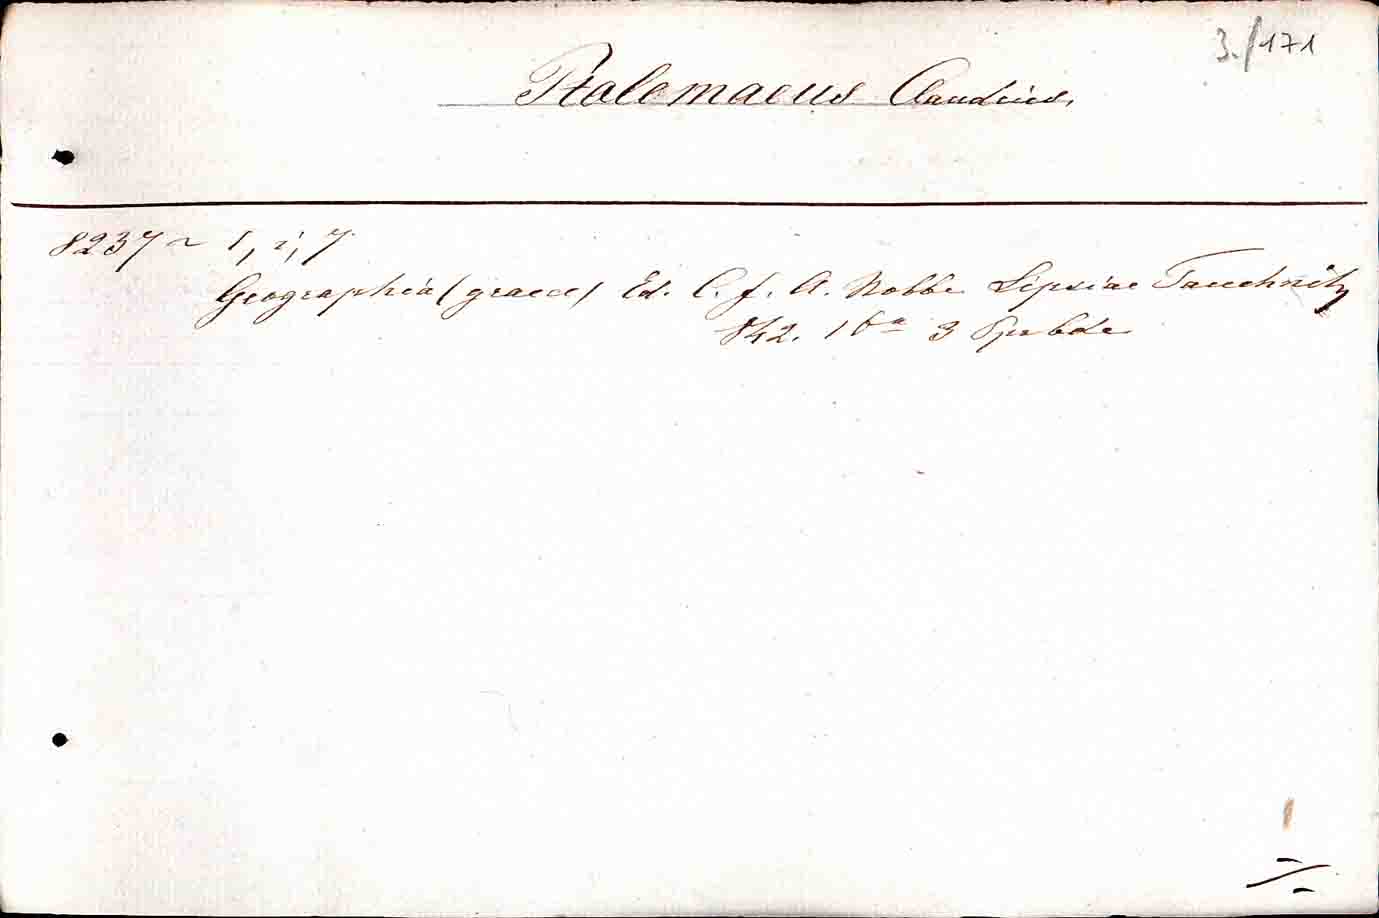 3./171
Ptolemaeus Claudius.
8237 ~ I, i, 7.
Geographia (graece) Ed. C. f. A. Nobbe Lipsiae Tauchnitz
842. 16° 3 Pprbde